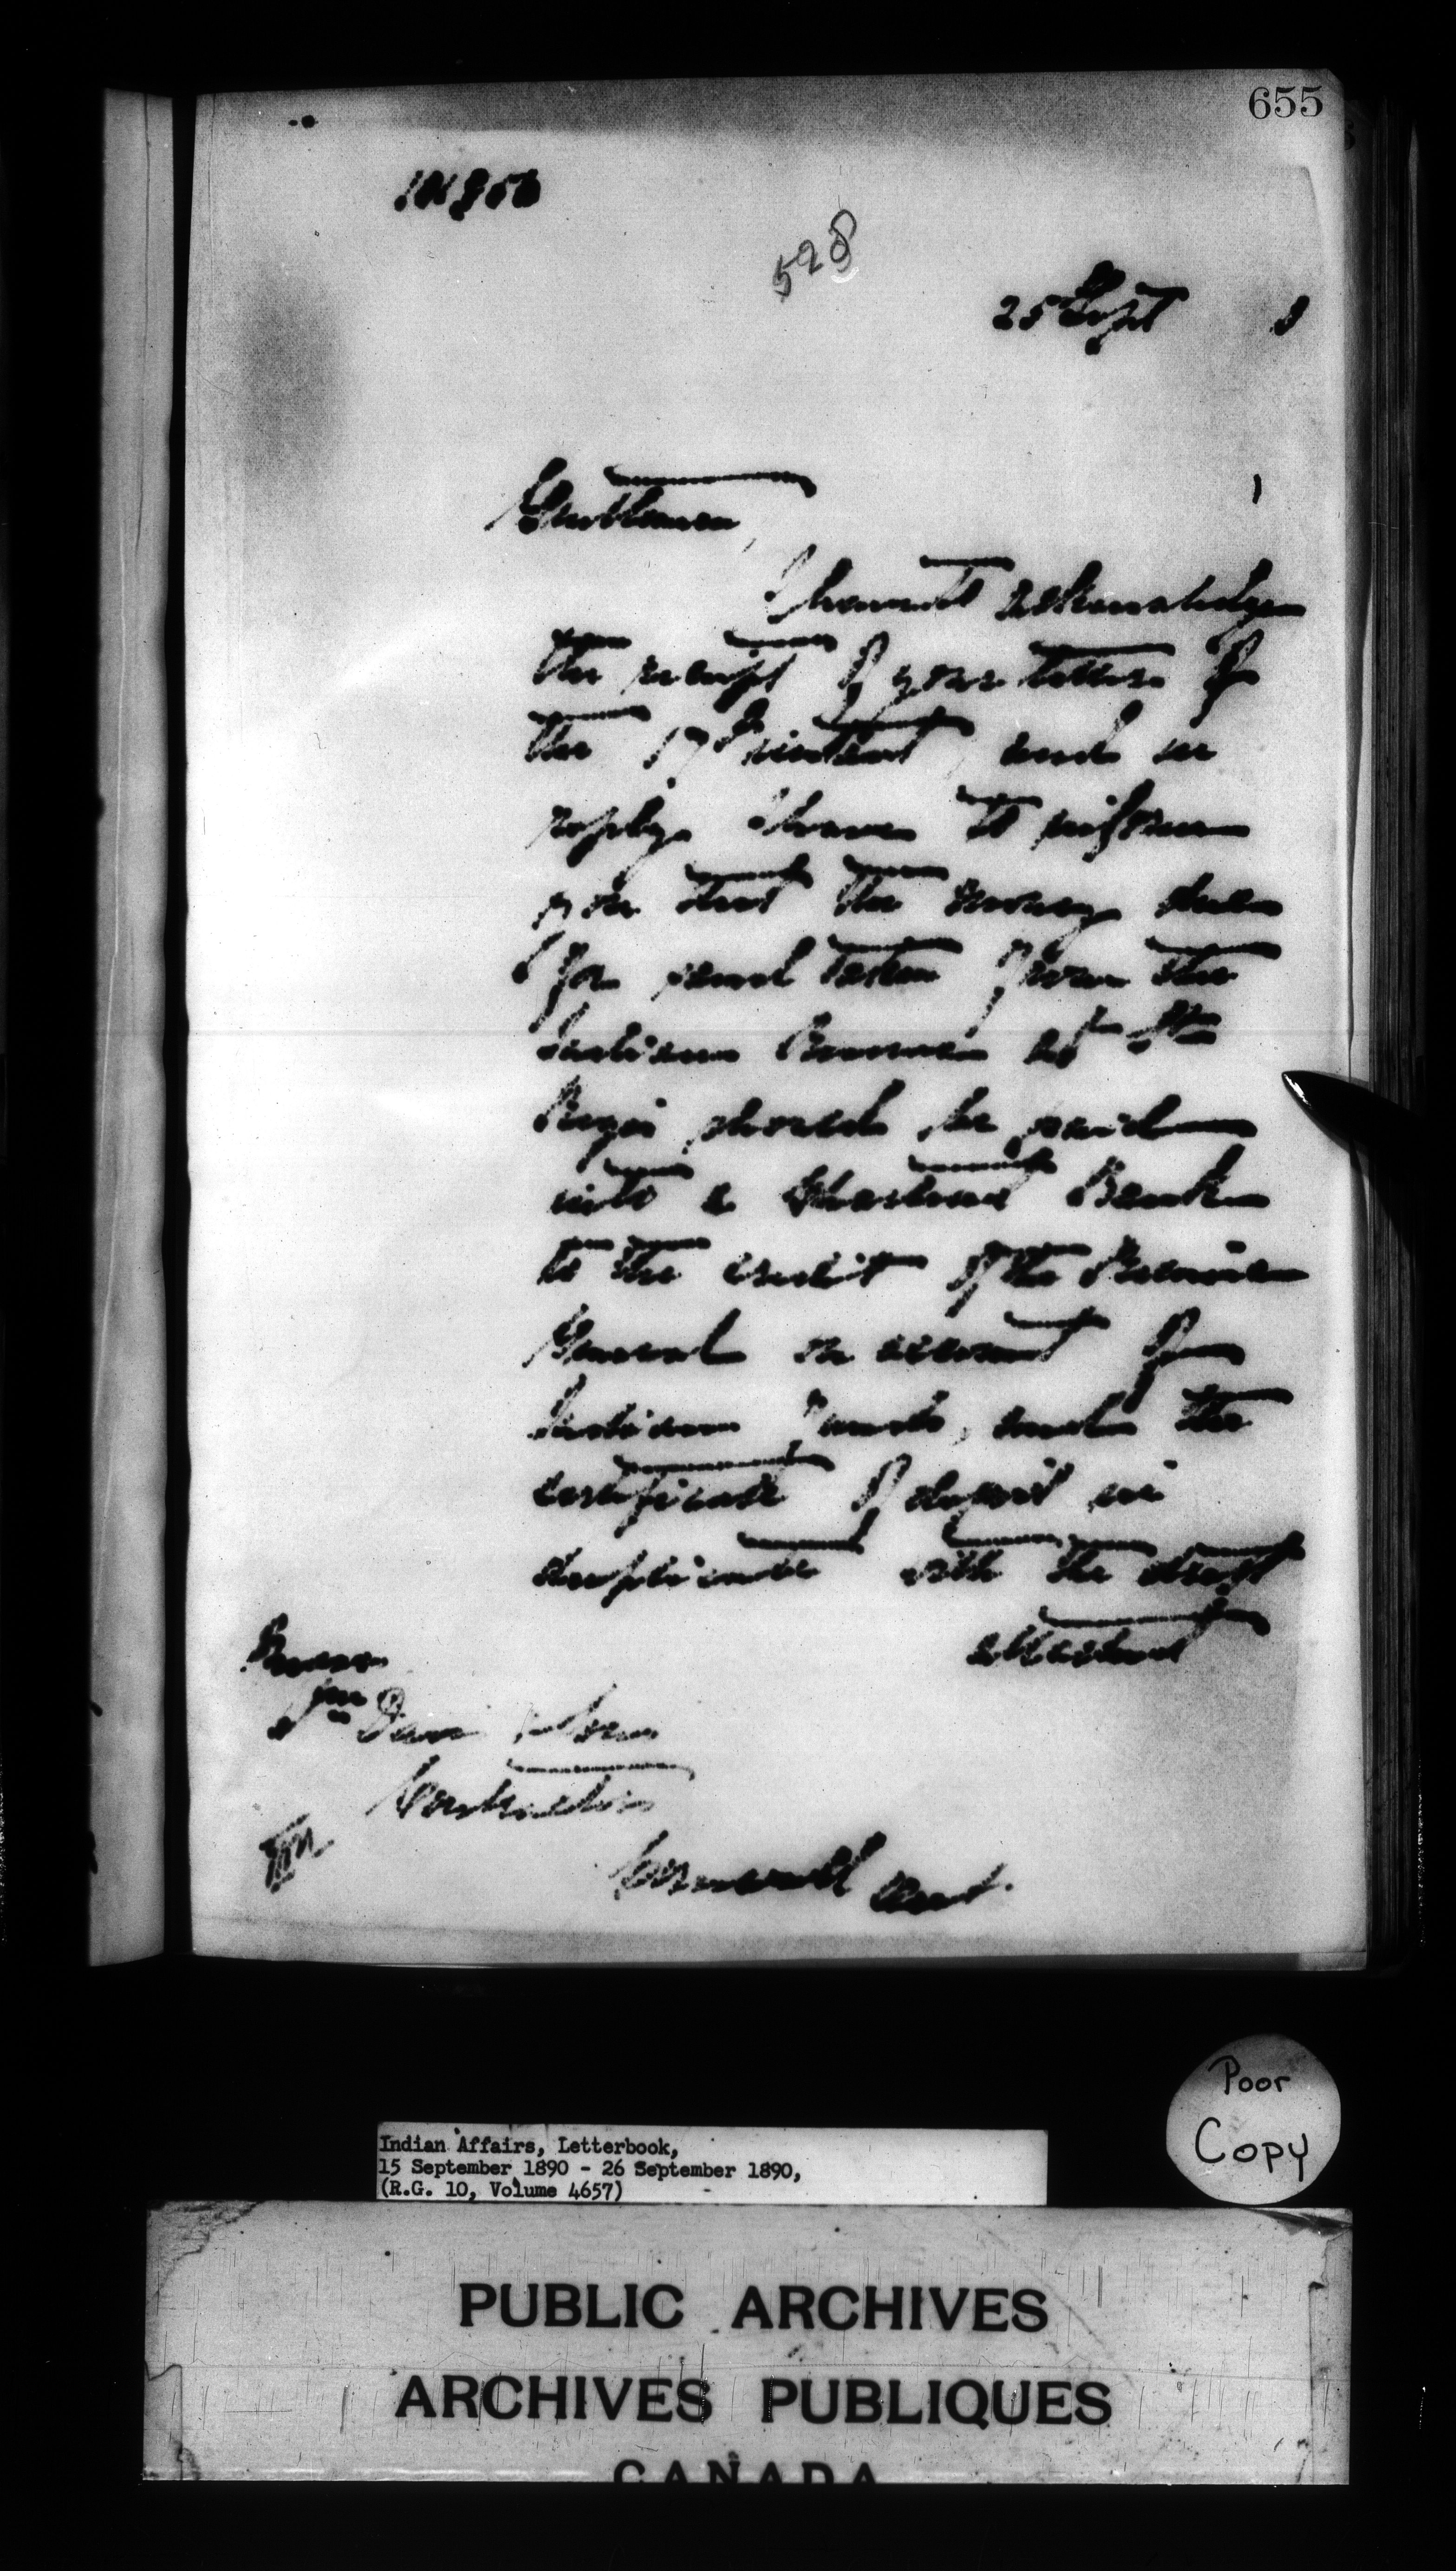 655
528
25 Sept 0
Gentlemen,
I have to acknowledge
the receipt of your letter of
the 17th instant, and in
reply I have to inform
you that the money due
for sand taken from the
Indian Reserve at St
Regis should be paid
into a Chartered Bank
to the credit of the Receiver
General on account of
Indian Funds, and the
certificate of deposit in
duplicate with the draft
attached
Messrs
Wm Davis & Sons
Contractors
Cornwall Ont.
Poor
Copy
Indian Affairs, Letterbook,
15 September 1890 - 26 September 1890,
(R.G. 10, Volume 4657)
PUBLIC ARCHIVES
ARCHIVES PUBLIQUES
CANADA